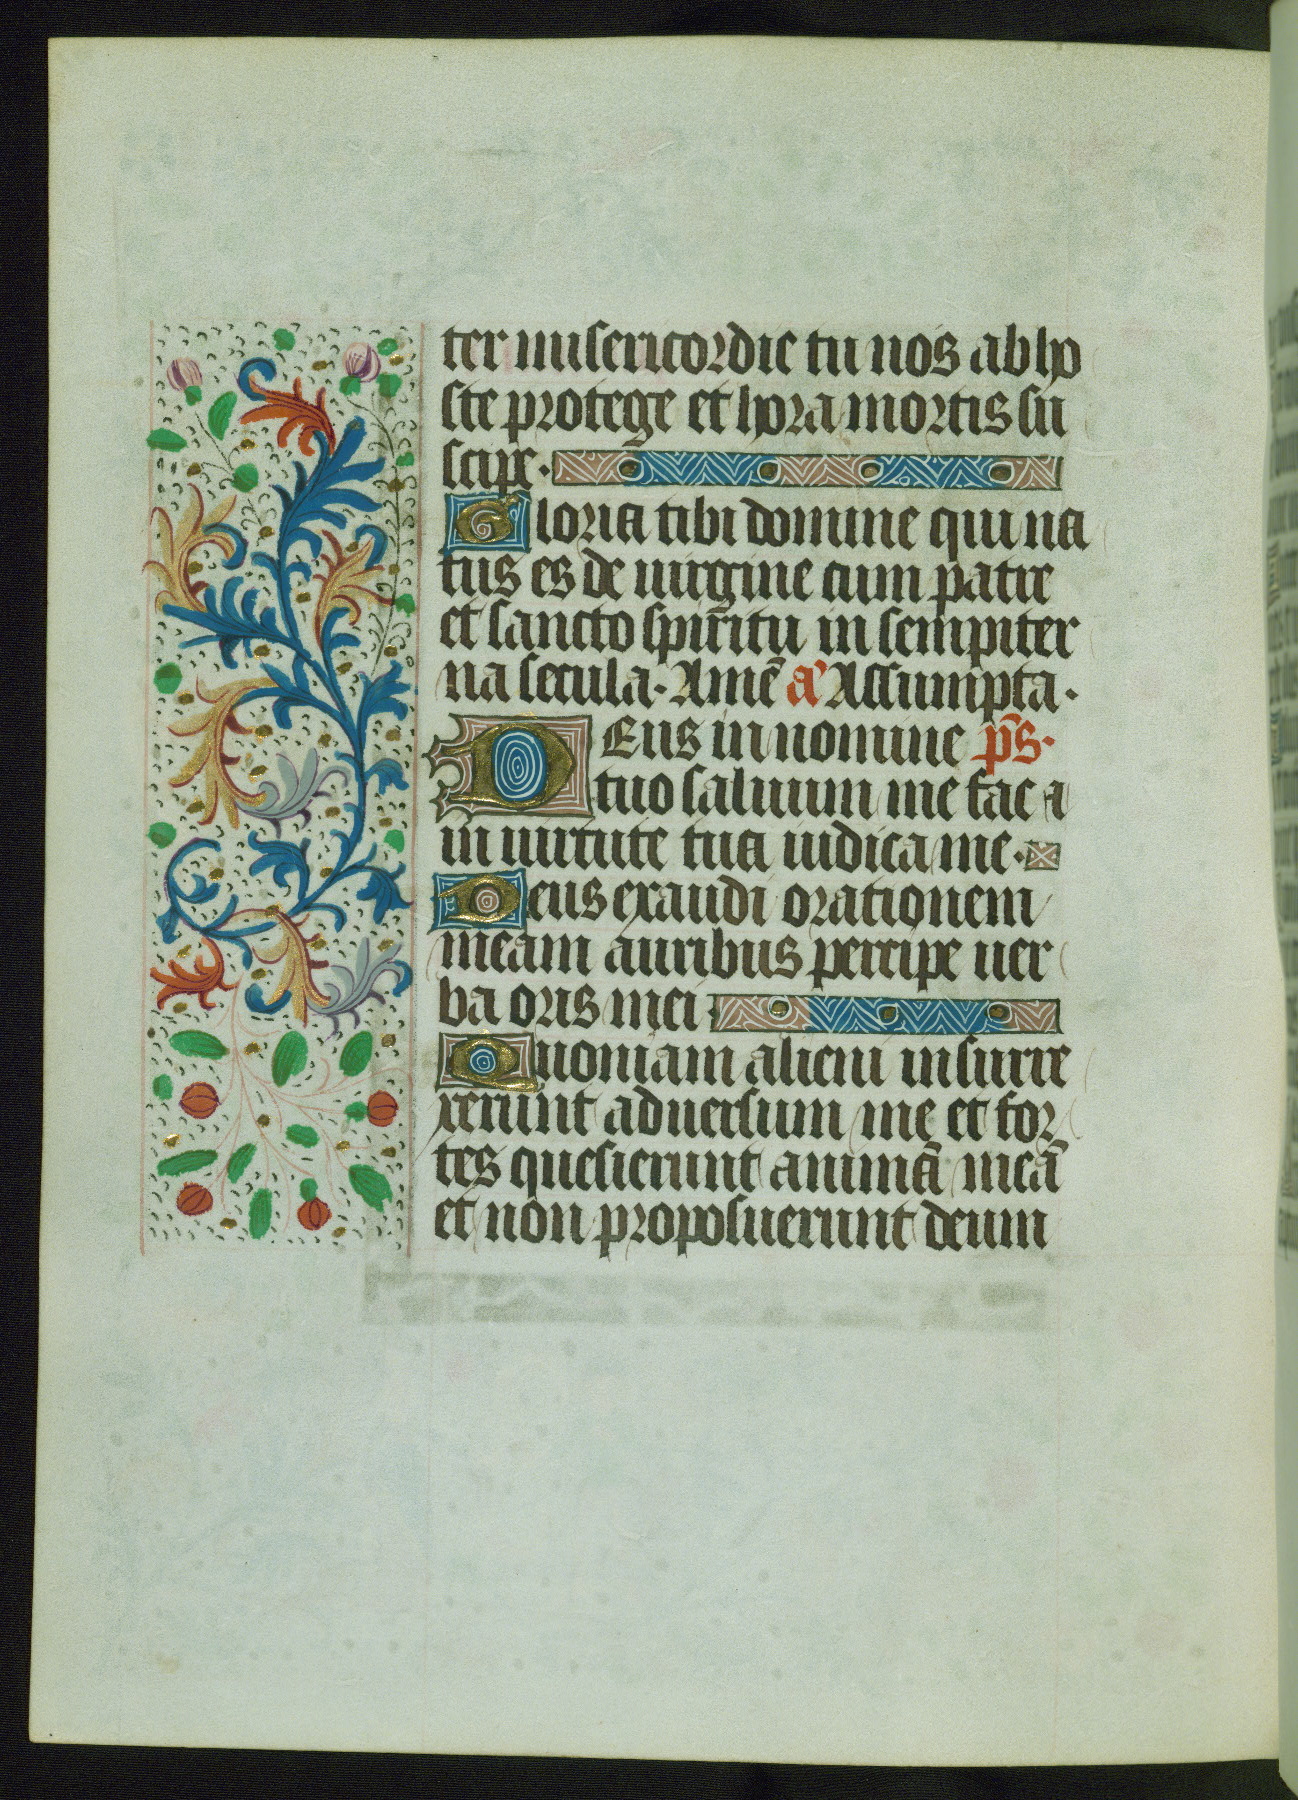 ter misericordie tu nos ab ho
ste protege et hora mortis su
scipe.
Gloria tibi domine qui na
tus es de uirgine cum patre
et sancto spiritu in sempiter
na secula. Amē a' Assumpta.
Deus in nomine ps.
tuo saluum me fac et
in uirtute tua iudica me.
Deus exaudi orationem
meam auribus percipe uer
ba oris mei
Quoniam alieni insurre
xerunt aduersum me et for
tes quesierunt animā meā
et non proposuerunt deum